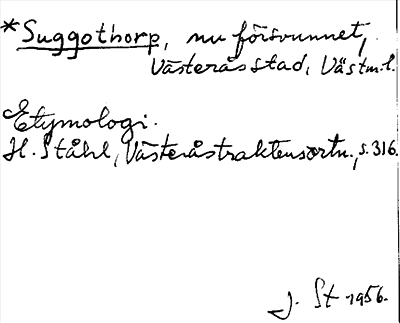 *Suggothorp, nu försvunnet,
Västerås stad, Västm.l.
Etymologi.
H. Ståhl, Västeråstraktens ortn., s. 316.
J. St 1956.